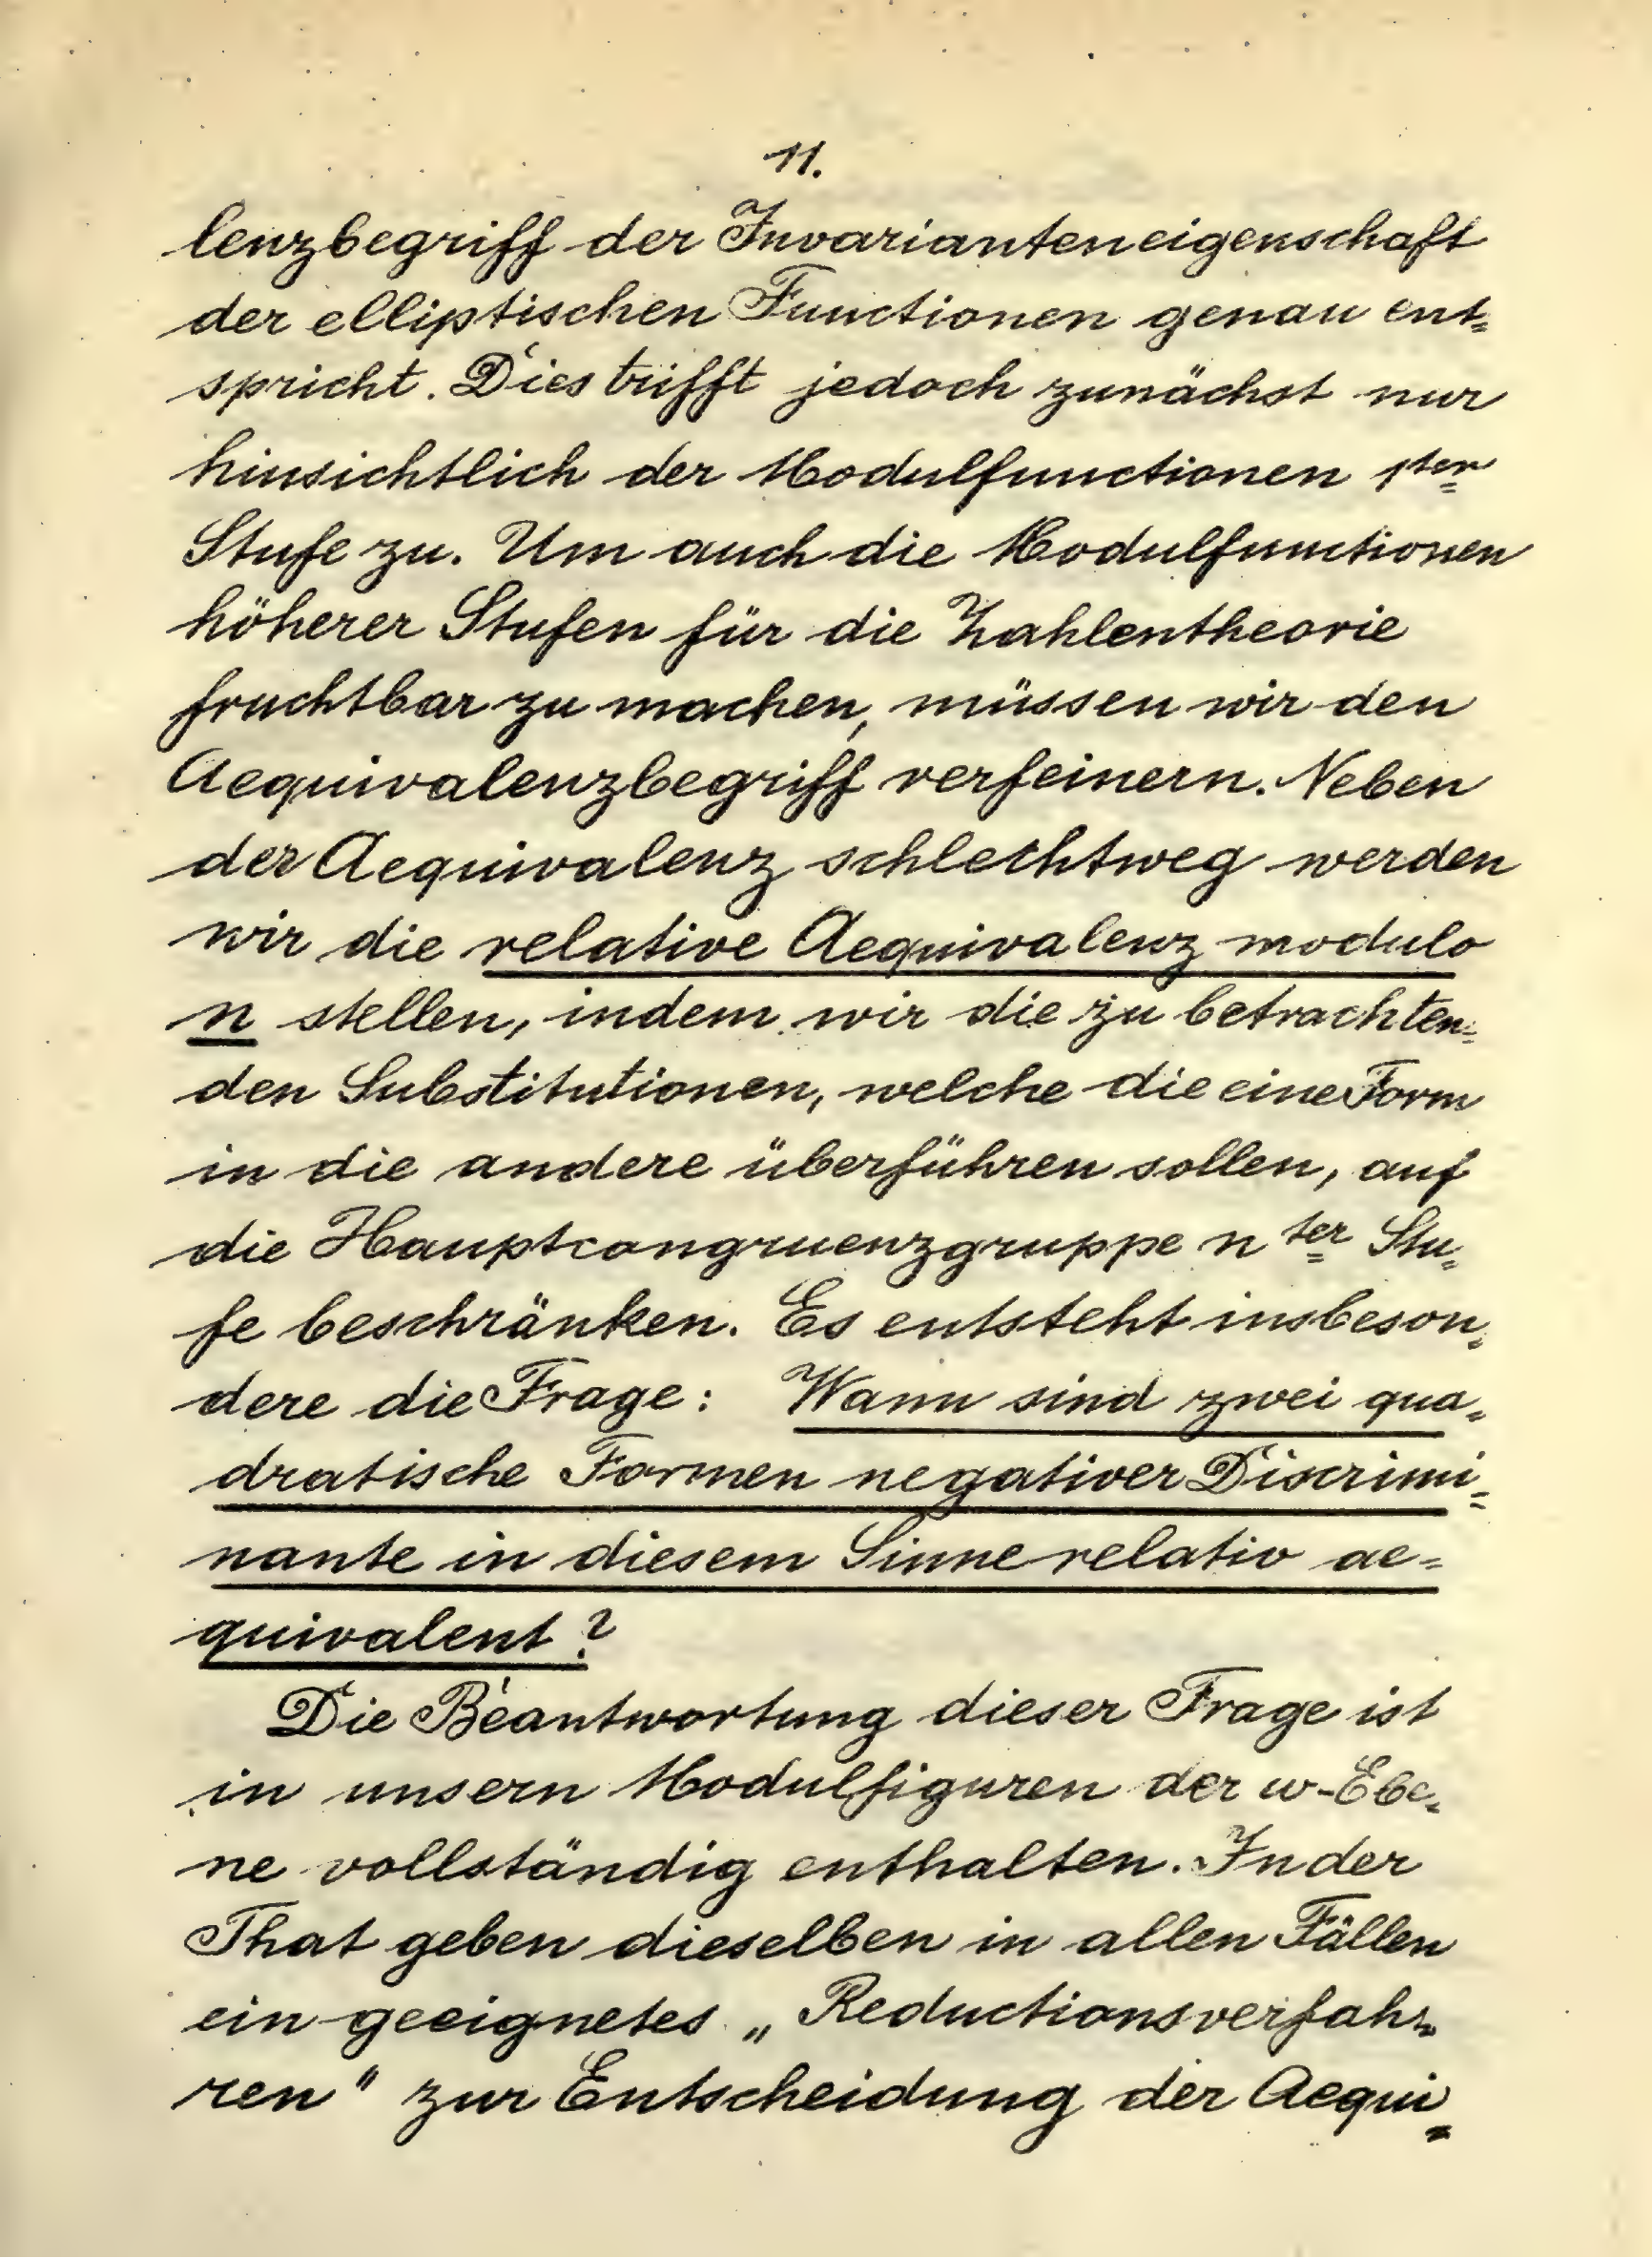 11.
lenzbegriff der Invarianteneigenschaft
der elliptischen Functionen genau ent=
spricht. Dies trifft jedoch zunächst nur
hinsichtlich der Modulfunctionen 1ter
Stufe zu. Um auch die Modulfunctionen
höherer Stufen für die Zahlentheorie
fruchtbar zu machen, müssen wir den
Aequivalenzbegriff verfeinern. Neben
der Aequivalenz schlechtweg werden
wir die relative Aequivalenz modulo
n stellen, indem wir die zu betrachten=
den Substitutionen, welche die eine Form
in die andere überführen sollen, auf
die Hauptcongruenzgruppe nter Stu=
fe beschränken. Es entsteht insbeson=
dere die Frage: Wann sind zwei qua=
dratische Formen negativer Discrimi=
nante in diesem Sinne relativ ae=
quivalent?
Die Beantwortung dieser Frage ist
in unsern Modulfiguren der ω-Ebe=
ne vollständig enthalten. In der
That geben dieselben in allen Fällen
ein geeignetes „Reductionsverfah=
ren" zur Entscheidung der Aequi=